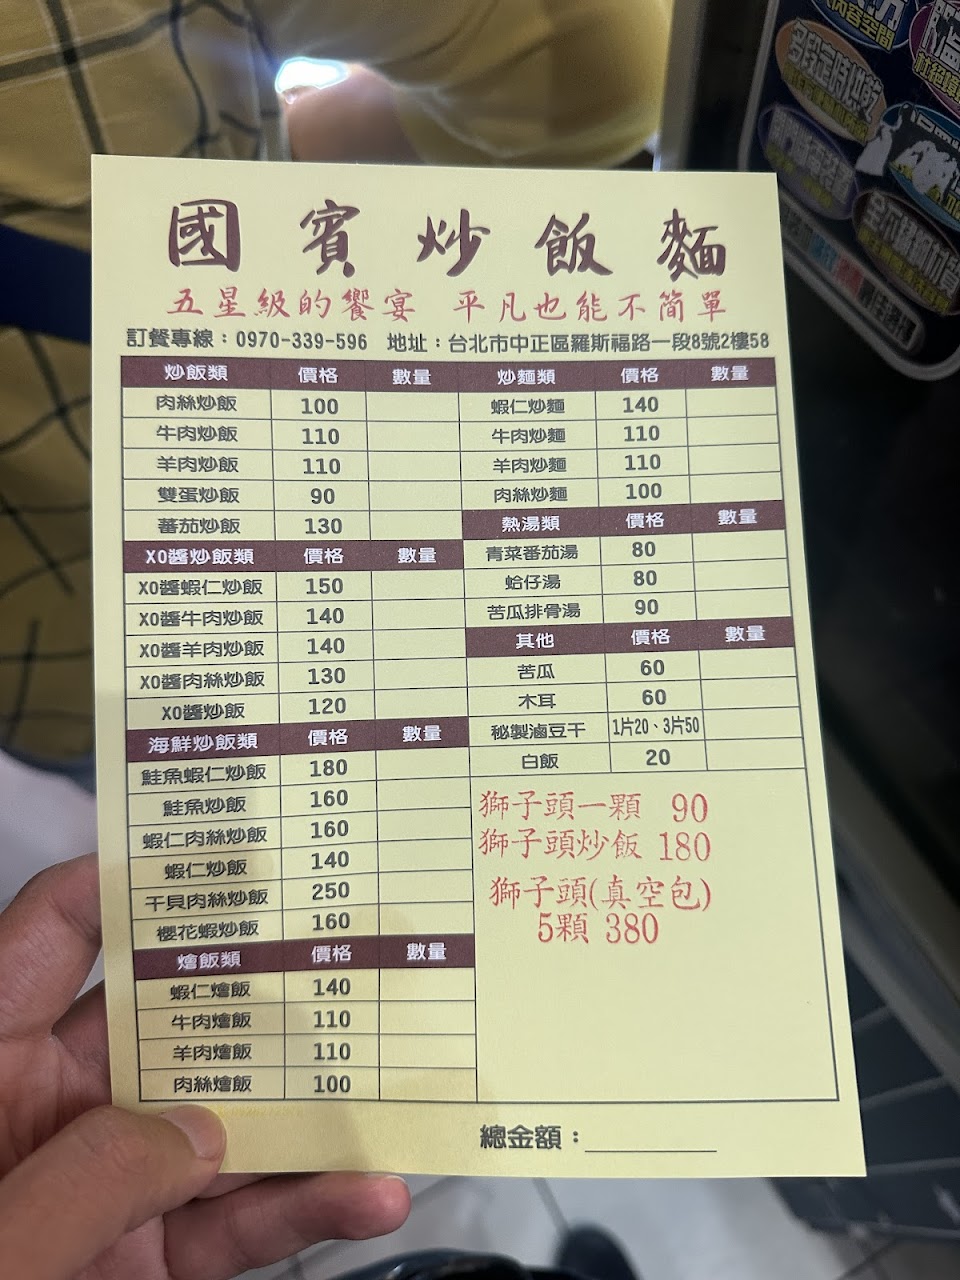 國賓炒飯麵
五星級的饗宴 平凡也能不簡單
訂餐專線：0970-339-596 地址：台北市中正區羅斯福路一段8號2樓58
炒飯類 價格 數量
肉絲炒飯 100
牛肉炒飯 110
羊肉炒飯 110
雙蛋炒飯 90
蕃茄炒飯 130
XO醬炒飯類 價格 數量
XO醬蝦仁炒飯 150
XO醬牛肉炒飯 140
XO醬羊肉炒飯 140
XO醬肉絲炒飯 130
XO醬炒飯 120
海鮮炒飯類 價格 數量
鮭魚蝦仁炒飯 180
鮭魚炒飯 160
蝦仁肉絲炒飯 160
蝦仁炒飯 140
干貝肉絲炒飯 250
櫻花蝦炒飯 160
燴飯類 價格 數量
蝦仁燴飯 140
牛肉燴飯 110
羊肉燴飯 110
肉絲燴飯 100
炒麵類 價格 數量
蝦仁炒麵 140
牛肉炒麵 110
羊肉炒麵 110
肉絲炒麵 100
熱湯類 價格 數量
青菜番茄湯 80
蛤仔湯 80
苦瓜排骨湯 90
其他 價格 數量
苦瓜 60
木耳 60
秘製滷豆干 1片20、3片50
白飯 20
獅子頭一顆 90
獅子頭炒飯 180
獅子頭(真空包)
5顆 380
總金額：
內容空間
多段定時